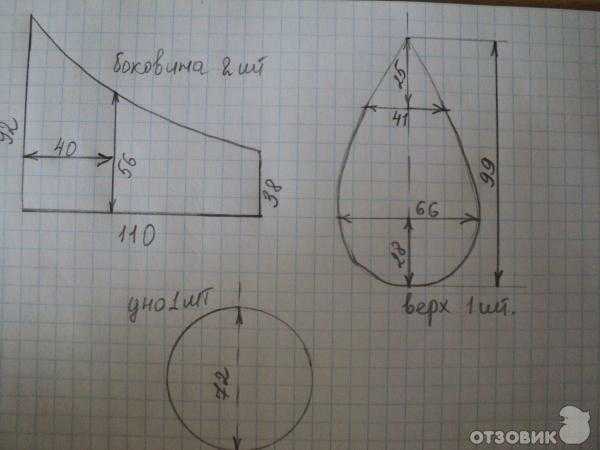 боковина 2 шт
92
40
56
38
110
25
41
99
66
28
верх 1 шт.
дно 1 шт
72
ОТЗОВИК